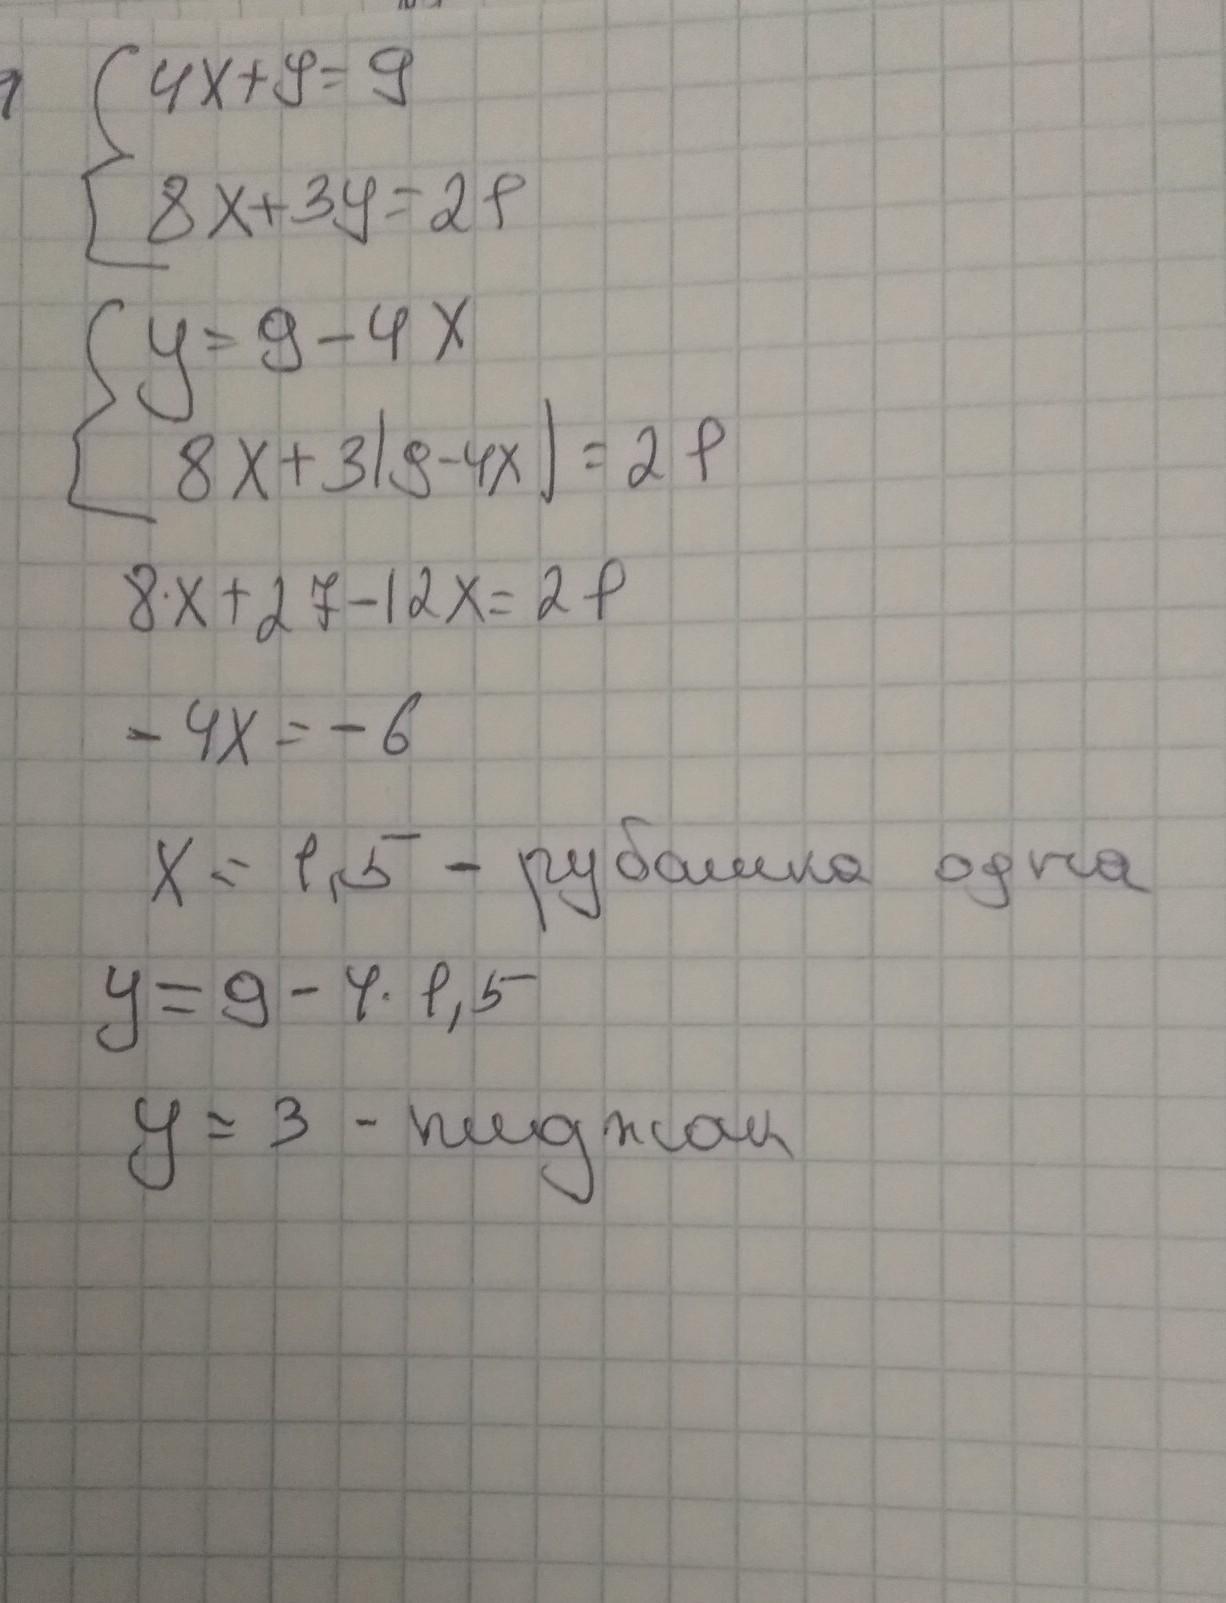 4x+y=9
8x+3y=21
y=9-4x
8x+3(9-4x)=21
8x+27-12x=21
-4x=-6
x=1,5 - рубашка одна
y=9-4·1,5
y=3 - пиджак